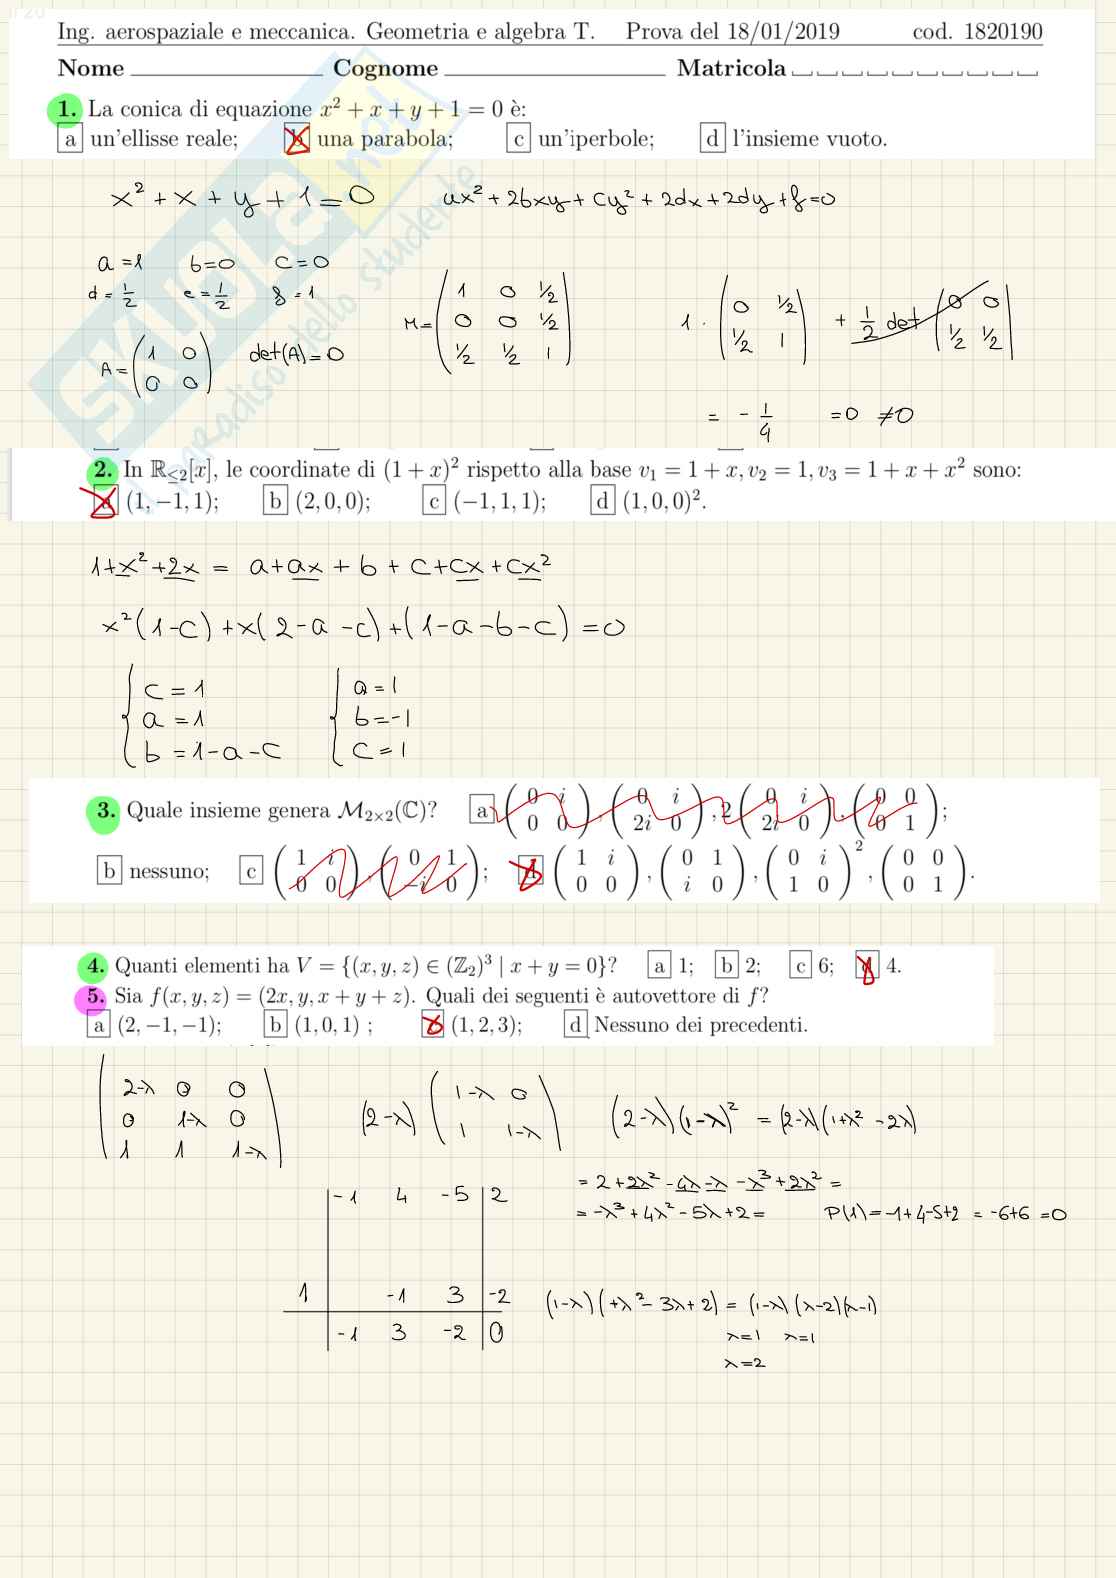 Ing. aerospaziale e meccanica. Geometria e algebra T. Prova del 18/01/2019 cod. 1820190
Nome Cognome Matricola
1. La conica di equazione x² + x + y + 1 = 0 è:
a un'ellisse reale; b una parabola; c un'iperbole; d l'insieme vuoto.
x² + x + y + 1 = 0 ax² + 2bxy + cy² + 2dx + 2dy + f = 0
a = 1 b = 0 c = 0
d = 1/2 e = 1/2 f = 1
M = (1 0 1/2; 0 0 1/2; 1/2 1/2 1) 1 · |0 1/2; 1/2 1| + 1/2 det |0 0; 1/2 1/2|
A = (1 0; 0 0) det(A) = 0
= - 1/4 = 0 ≠ 0
SKUOLA.net
il paradiso dello studente
2. In ℝ≤2[x], le coordinate di (1 + x)² rispetto alla base v₁ = 1 + x, v₂ = 1, v₃ = 1 + x + x² sono:
a (1, −1, 1); b (2, 0, 0); c (−1, 1, 1); d (1, 0, 0)².
1 + x² + 2x = a + ax + b + c + cx + cx²
x²(1-c) + x(2-a-c) + (1-a-b-c) = 0
{ c = 1 { a = 1
a = 1 b = -1
b = 1-a-c c = 1
3. Quale insieme genera M₂ₓ₂(ℂ)? a (0 i; 0 0), (0 i; 2i 0), 2 (0 i; 2i 0), (0 0; 0 1);
b nessuno; c (1 i; 0 0), (0 1; −i 0); d (1 i; 0 0), (0 1; i 0), (0 i; 1 0)², (0 0; 0 1).
4. Quanti elementi ha V = {(x, y, z) ∈ (ℤ₂)³ | x + y = 0}? a 1; b 2; c 6; d 4.
5. Sia f(x, y, z) = (2x, y, x + y + z). Quali dei seguenti è autovettore di f?
a (2, −1, −1); b (1, 0, 1) ; c (1, 2, 3); d Nessuno dei precedenti.
(2-λ 0 0; 0 1-λ 0; 1 1 1-λ) (2-λ) (1-λ 0; 1 1-λ) (2-λ)(1-λ)² = (2-λ)(1+λ²-2λ)
= 2 + 2λ² - 4λ - λ - λ³ + 2λ² =
= -λ³ + 4λ² - 5λ + 2 = P(1) = -1 + 4 - 5 + 2 = -6 + 6 = 0
-1 4 -5 2
1 -1 3 -2
-1 3 -2 0
(1-λ)(+λ² - 3λ + 2) = (1-λ)(λ-2)(λ-1)
λ = 1 λ = 1
λ = 2